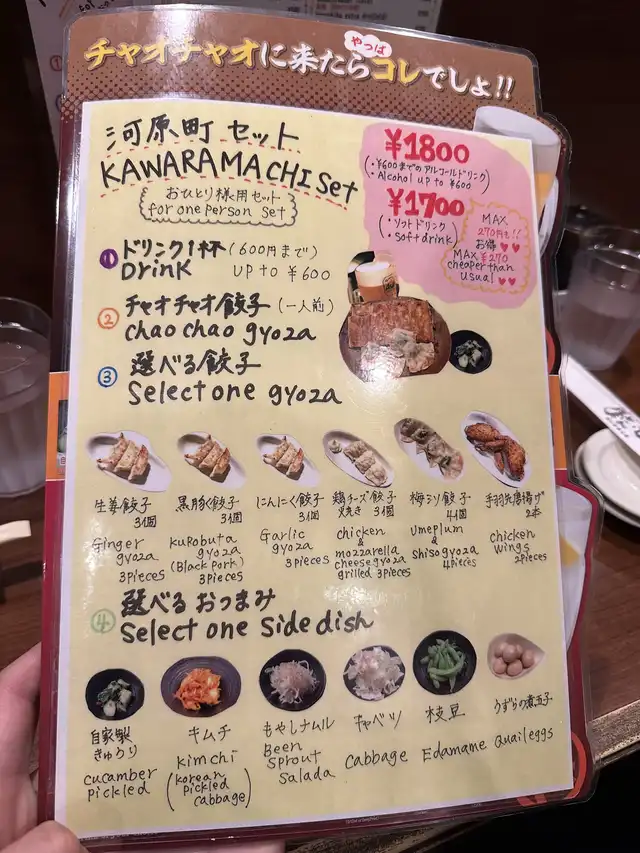 チャオチャオに来たらコレでしょ!!
やっぱ
河原町セット
KAWARAMACHI Set
おひとり様用セット
for one person set
¥1800
(・¥600までのアルコールドリンク
・Alcohol up to ¥600)
¥1700
(・ソフトドリンク
・soft drink)
MAX
270円も!!
お得♥♥
MAX ¥270
cheaper than
usual ♥♥
① ドリンク1杯 (600円まで)
Drink UP to ¥600
② チャオチャオ餃子 (一人前)
chao chao gyoza
③ 選べる餃子
Select one gyoza
生姜餃子
3個
Ginger
gyoza
3pieces
黒豚餃子
3個
Kurobuta
gyoza
(Black Pork)
3Pieces
にんにく餃子
3個
Garlic
gyoza
3pieces
鶏チーズ餃子
焼き 3個
chicken
&
mozzarella
cheese gyoza
grilled 3pieces
梅シソ餃子
4個
Umeplum
&
Shiso gyoza
4pieces
手羽兵唐揚げ
2本
chicken
wings
2pieces
④ 選べるおつまみ
Select one Side dish
自家製
きゅうり
cucamber
pickled
キムチ
kimchi
(korean
pickled
cabbage)
もやしナムル
Been
Sprout
Salada
キャベツ
cabbage
枝豆
Edamame
うずらの煮玉子
Quail eggs